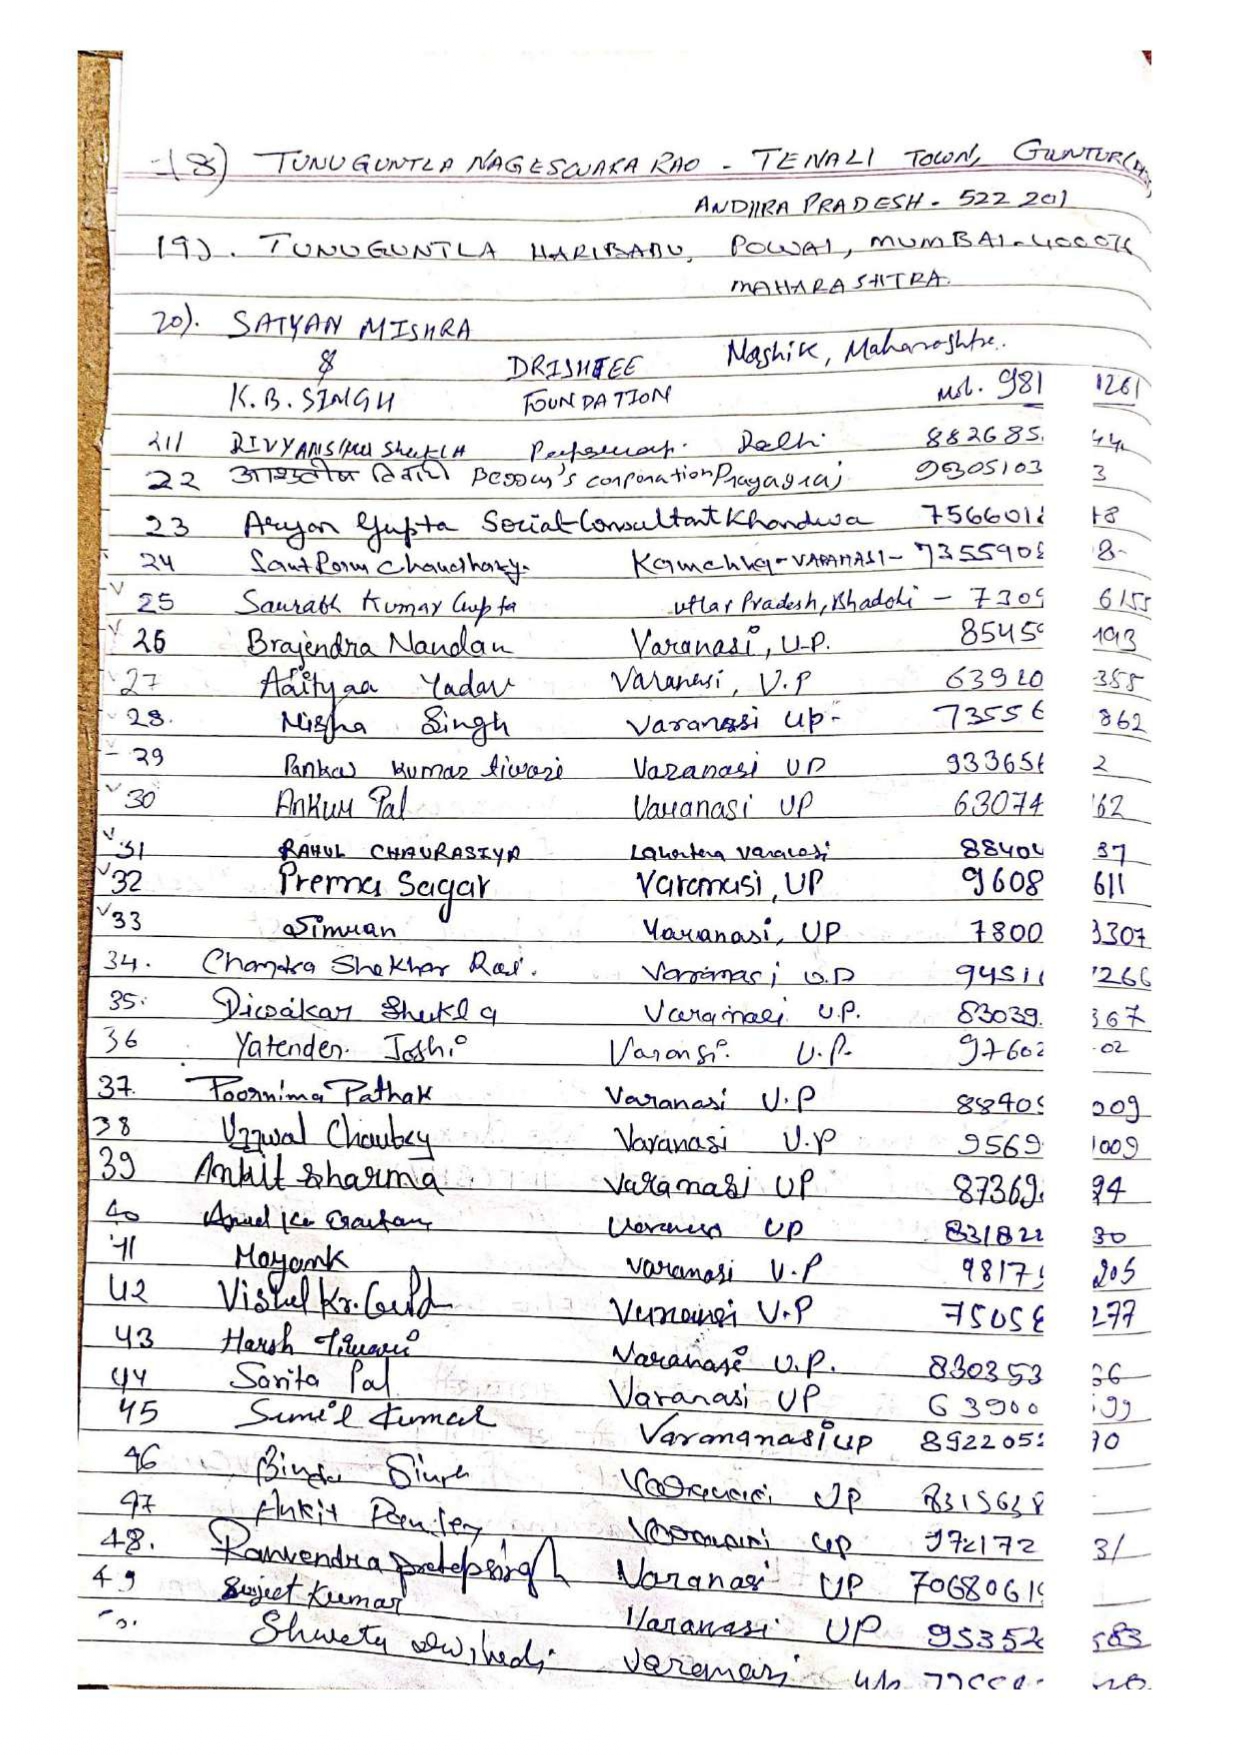 18) TUNUGUNTLA NAGESWARA RAO - TENALI TOWN, GUNTUR
ANDHRA PRADESH - 522 201
19). TUNUGUNTLA HARIBABU, POWAI, MUMBAI-400076
MAHARASHTRA.
20). SATYAN MISHRA
& DRISHTEE Nashik, Maharashtra.
K.B. SINGH FOUNDATION mob. 981 1261
21) DIVYANSHU Shukla Delhi 882685 44
22 आशुतोष तिवारी corporation Prayagraj 96305103 3
23 Aryan Gupta Social Consultant Khandwa 756601 18
24 Sant Ram Chaudhary. Kamchha-VARANASI- 735590 8-
25 Saurabh Kumar Gupta Uttar Pradesh, Bhadohi - 730 6155
26 Brajendra Nandan Varanasi, U.P. 8545 193
27 Adityaa Yadav Varanasi, U.P 63920 355
28. Nisha Singh Varanasi UP- 7355 862
29 Pankaj Kumar tiwari Varanasi UP 93365 2
30 Ankur Pal Varanasi UP 63074 62
31 RAHUL CHAURASIYA Lahartara varanasi 8840 37
32 Prema Sagar Varanasi, UP 9608 611
33 Simran Varanasi, UP 7800 3307
34. Chandra Shekhar Rai. Varanasi U.P 9451 266
35. Diwakar Shukla Varanasi U.P. 83039 367
36 Yatender Joshi Varansi U.P. 9760 02
37. Poornima Pathak Varanasi U.P 8840 009
38 Ujjwal Chaubey Varanasi U.P 9569 1009
39 Ankit Sharma Varanasi UP 87369 94
40 Kr Gautam Varanasi UP 831822 30
41 Mayank Varanasi U.P 9817 205
42 Vishal Kr. Varanasi U.P 7505 277
43 Harsh Tiwari Varanasi U.P. 830353 36
44 Sarita Pal Varanasi UP 63900 99
45 Sunil Kumar Varananasi UP 892205 70
46 Bindu Singh Varanasi UP 831563
47 Ankit Pandey Varanasi UP 972172 31
48. Ranvendra pratap singh Varanasi UP 7068061
49 Sujeet Kumar Varanasi UP 9535 583
Shweta dwivedi Varanasi